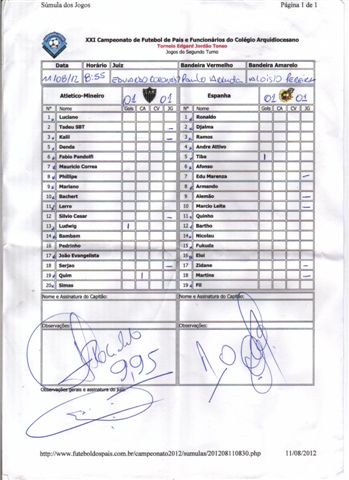 Súmula dos Jogos Página 1 de 1
XXI Campeonato de Futebol de Pais e Funcionários do Colégio Arquidiocesano
Torneio Edgard Jordão Tonso
Jogos do Segundo Turno
Data Horário Juiz Bandeira Vermelho Bandeira Amarelo
11/08/12 8:55 EDUARDO Paulo Arruda
Atletico-Mineiro 01 01 Espanha 01 01
Nº Nome Gols CA CV JG Nº Nome Gols CA CV JG
1 Luciano 1 Ronaldo
2 Tadeu SBT 2 Djalma
3 Kalil 3 Ramos
5 Denda 4 Andre Attivo
6 Fabio Pandolfi 5 Tiba
7 Mauricio Correa 6 Afonso
8 Phillipe 7 Edu Marenza
9 Mariano 8 Armando
10 Bachert 9 Alemão
11 Lerro 10 Marcio Leite
12 Silvio Cesar 11 Quinho
13 Ludwig 12 Bartho
14 Bambam 14 Nicolau
16 Pedrinho 15 Fukuda
17 João Evangelista 16 Eloi
18 Serjao 17 Zidane
19 Quim 18 Martins
20 Simas 19 Fil
Nome e Assinatura do Capitão: Nome e Assinatura do Capitão:
Observações: Observações:
9,95 10
Observações gerais e assinatura do juiz
http://www.futeboldospais.com.br/campeonato2012/sumulas/201208110830.php 11/08/2012